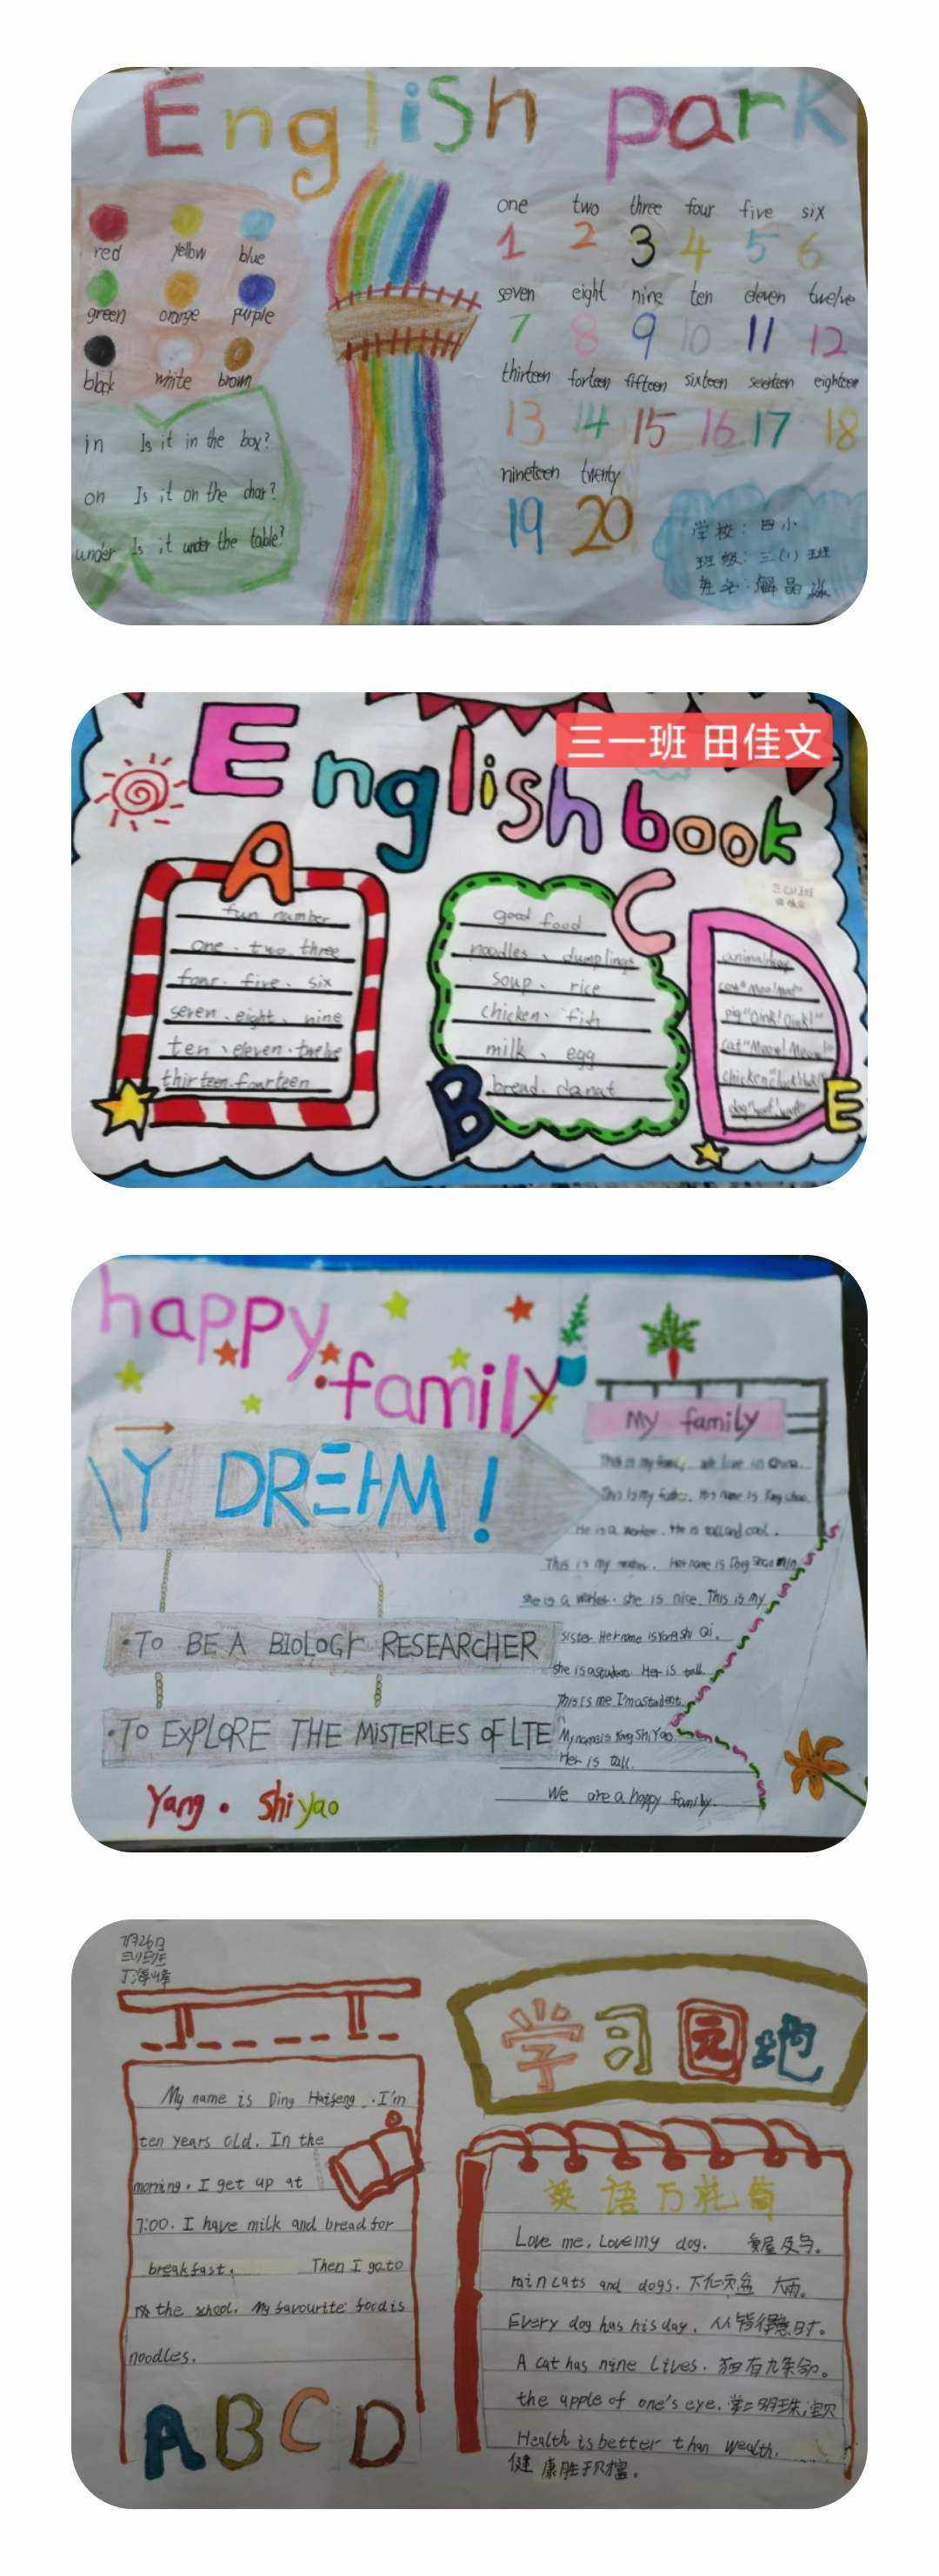 English park
red yellow blue
green orange purple
black white brown
in Is it in the box?
on Is it on the chair?
under Is it under the table?
one two three four five six
1 2 3 4 5 6
seven eight nine ten eleven twelve
7 8 9 10 11 12
thirteen forteen fifteen sixteen seventeen eighteen
13 14 15 16 17 18
nineteen twenty
19 20
学校：四小
班级：三(1)班
姓名：解晶
三一班 田佳文
English book
A
fun number
one、two、three
four、five、six
seven、eight、nine
ten、eleven、twelve
thirteen、fourteen
B
C
good food
noodles、dumplings
soup、rice
chicken、fish
milk、egg
bread、donut
D
pig "Oink! Oink!"
cat "Meow! Meow!"
E
happy family
Y DREAM!
·TO BE A BIOLOGY RESEARCHER
·TO EXPLORE THE MISTERLES OF LTE
Yang · Shi yao
My family
This is my family. we live in
This is my father. His name is Yang
He is a worker. He is tall and cool.
This is my mother. Her name is
she is a worker. she is nice. This is my
sister. Her name is Yang Shi Qi.
she is a student. Her is tall.
This is me I'm a student.
My name is Yang Shi Yao
Her is tall.
We are a happy family.
7月26日
三(1)班
丁海峰
My name is Ding Haifeng. I'm
ten years old. In the
morning. I get up at
7:00. I have milk and bread for
breakfast. Then I go to
the school. My favourite food is
noodles.
A B C D
学习园地
英语万花筒
Love me, Love my dog. 爱屋及乌。
rain cats and dogs. 下倾盆大雨。
Every dog has his day. 人人皆得意时。
A cat has nine lives. 猫有九条命。
the apple of one's eye. 掌上明珠；宝贝
Health is better than wealth.
健康胜于财富。